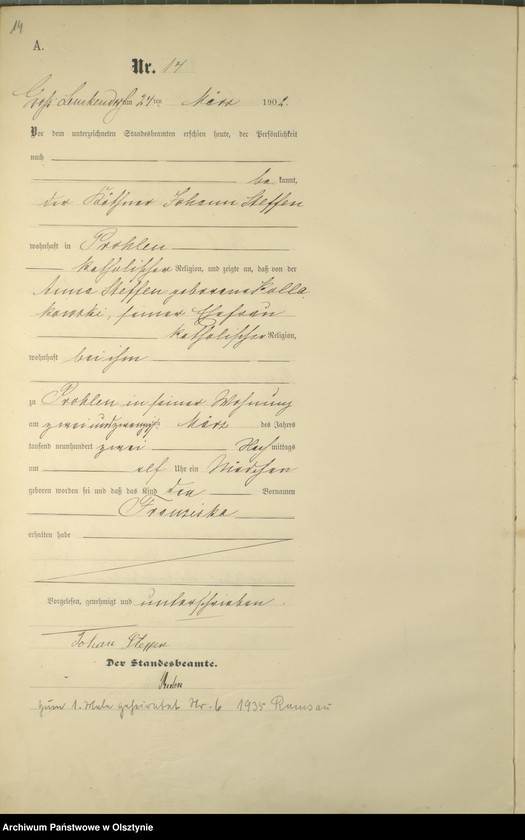 14
A.
Nr. 14
Groß Lemkendorf am 24ten März 1902.
Vor dem unterzeichneten Standesbeamten erschien heute, der Persönlichkeit
nach
be kannt,
der Käthner Johann Steffen
wohnhaft in Prohlen
katholischer Religion, und zeigte an, daß von der
Anna Steffen geborene Kolla
kowski, seiner Ehefrau
katholischer Religion,
wohnhaft bei ihm
zu Prohlen in seiner Wohnung
am zwei und zwanzigst. März des Jahres
tausend neunhundert zwei Nach mittags
um elf Uhr ein Mädchen
geboren worden sei und daß das Kind den Vornamen
Franziska
erhalten habe
Vorgelesen, genehmigt und unterschrieben.
Johan Steffen
Der Standesbeamte.
zum 1. Male geheiratet Nr. 6 1935 Ramsau
Archiwum Państwowe w Olsztynie